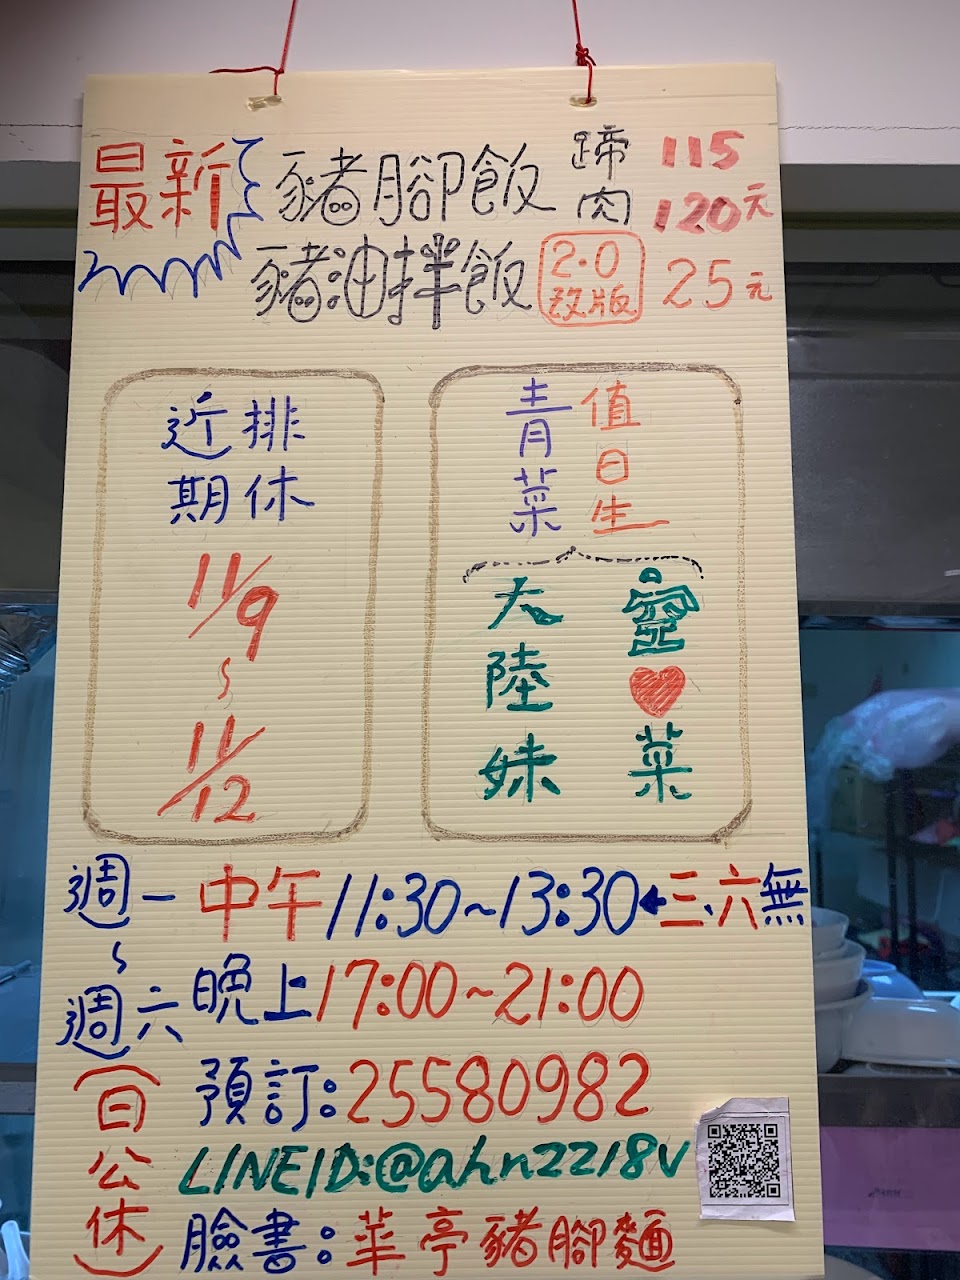 最新
豬腳飯 蹄 115
肉 120元
豬油拌飯 2.0 改版 25元
近期
排休
11/9
~
11/12
值日生
青菜
空❤菜
大陸妹
週一~週六
中午11:30~13:30←三、六無
晚上17:00~21:00
(日公休)
預訂:25580982
LINEID:@ahn2218v
臉書:華亭豬腳麵